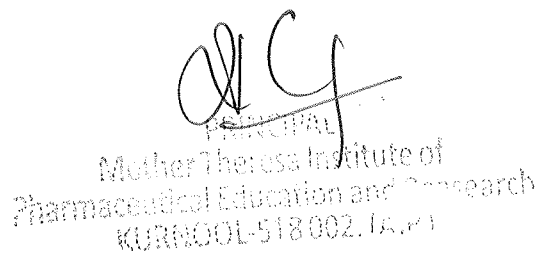 PRINCIPAL
Mother Theresa Institute of
Pharmaceutical Education and Research
KURNOOL-518 002. (A.P)